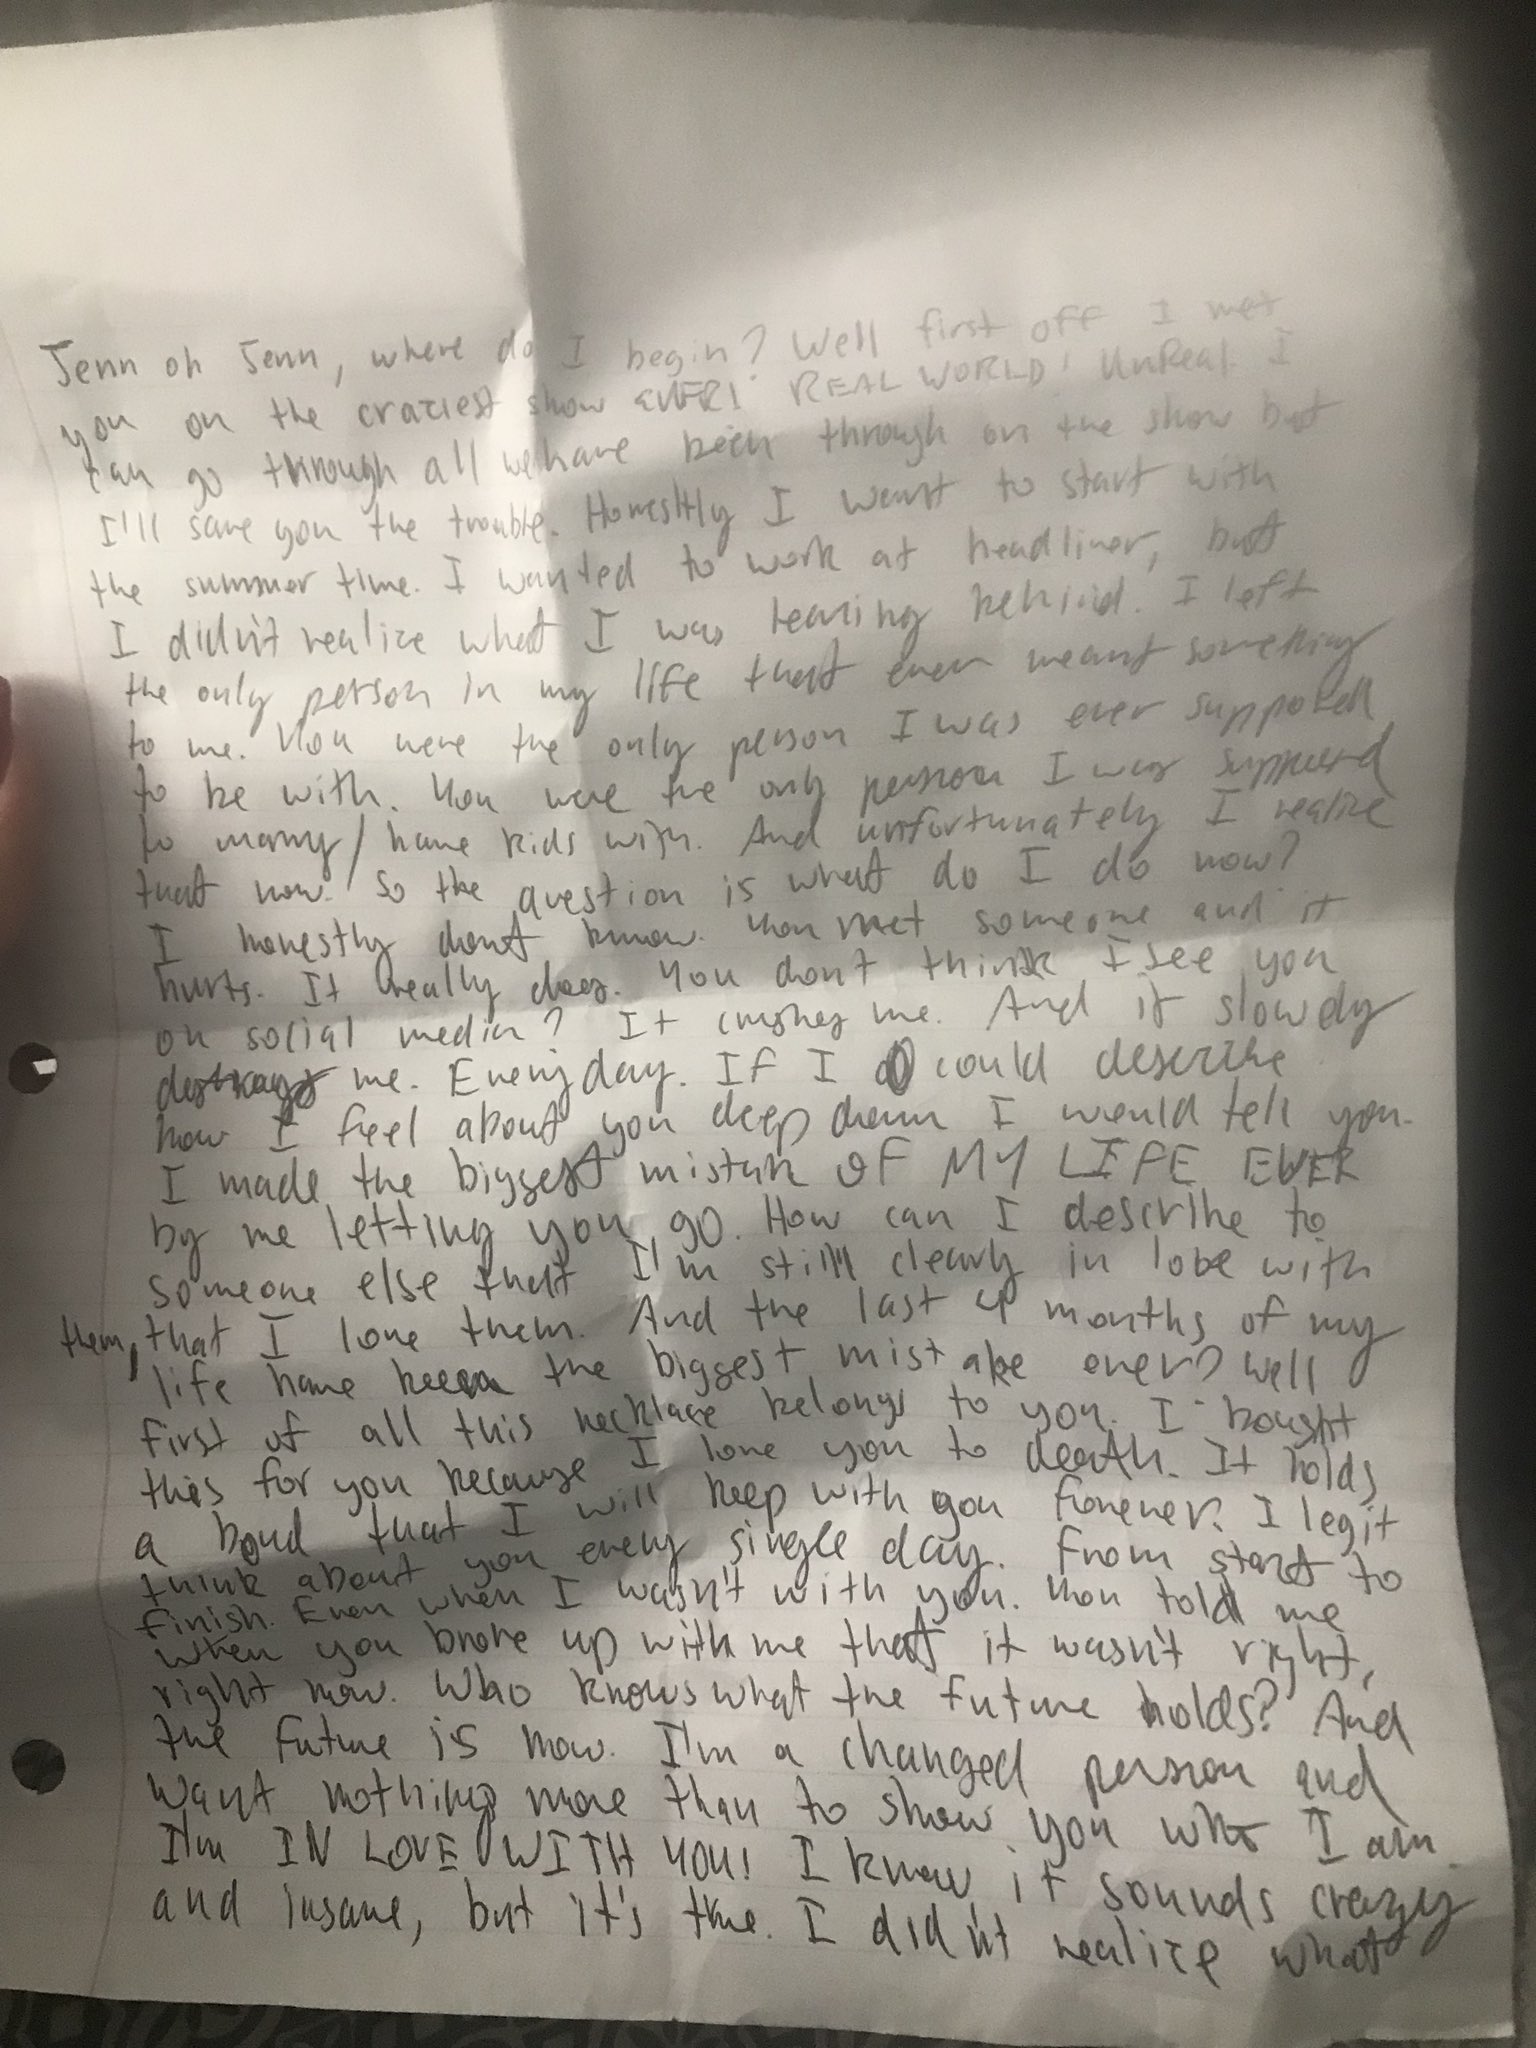 Jenn oh Jenn, where do I begin? Well first off I met
you on the craziest show EVER! REAL WORLD! UnReal. I
can go through all we have been through on the show but
I'll save you the trouble. Honestly I want to start with
the summer time. I wanted to work at headliner, but
I didn't realize what I was leaving behind. I left
the only person in my life that ever meant something
to me. You were the only person I was ever supposed
to be with. You were the only person I was supposed
to marry/have kids with. And unfortunately I realize
that now. So the question is what do I do now?
I honestly don't know. You met someone and it
hurts. It really does. You don't think I see you
on social media? It crushes me. And it slowly
destroys me. Everyday. If I could describe
how I feel about you deep down I would tell you.
I made the biggest mistak OF MY LIFE EVER
by me letting you go. How can I describe to
someone else that I'm still clearly in lobe with
them, that I love them. And the last 4 months of my
life have been the biggest mistake ever? Well
first of all this necklace belongs to you. I bought
this for you because I love you to death. It holds
a bond that I will keep with you forever. I legit
think about you every single day. From start to
finish. Even when I wasn't with you. You told me
when you broke up with me that it wasn't right,
right now. Who knows what the future holds? And
the future is now. I'm a changed person and
want nothing more than to show you who I am.
I'm IN LOVE WITH YOU! I know it sounds crazy
and insane, but it's true. I didn't realize what